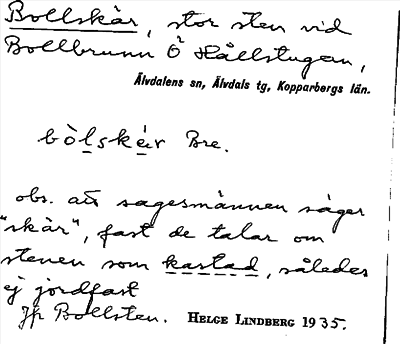 Bollskär, stor sten vid
Bollbrunn Ö Hållstugan,
Älvdalens sn, Älvdals tg, Kopparbergs län.
bòlskér Bre.
obs. att sagesmännen säger
"skär", fast de talar om
stenen som kastad, således
ej jordfast
Jfr Bollsten. HELGE LINDBERG 1935.